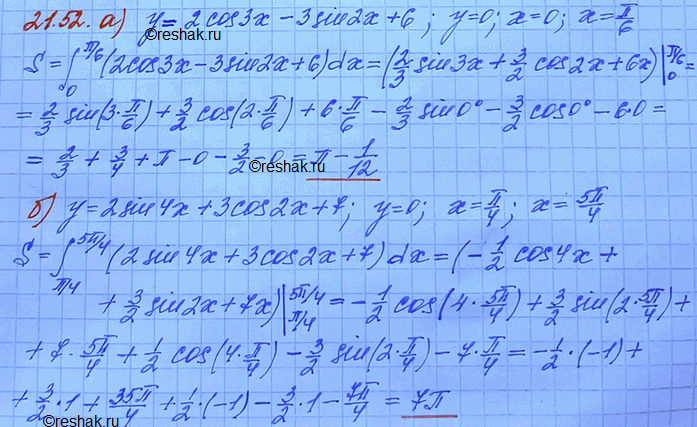 21.52. а) y = 2cos3x - 3sin2x + 6 ; y=0; x=0; x = π/6
S = ∫₀^π/6 (2cos3x - 3sin2x + 6)dx = (2/3 sin3x + 3/2 cos2x + 6x) |₀^π/6 =
= 2/3 sin(3·π/6) + 3/2 cos(2·π/6) + 6·π/6 - 2/3 sin0° - 3/2 cos0° - 6·0 =
= 2/3 + 3/4 + π - 0 - 3/2 - 0 = π - 1/12
б) y = 2sin4x + 3cos2x + 7; y=0; x = π/4; x = 5π/4
S = ∫π/4^5π/4 (2sin4x + 3cos2x + 7)dx = (-1/2 cos4x +
+ 3/2 sin2x + 7x) |π/4^5π/4 = -1/2 cos(4·5π/4) + 3/2 sin(2·5π/4) +
+ 7·5π/4 + 1/2 cos(4·π/4) - 3/2 sin(2·π/4) - 7·π/4 = -1/2·(-1) +
+ 3/2·1 + 35π/4 + 1/2·(-1) - 3/2·1 - 7π/4 = 7π
©Reshak.ru
©Reshak.ru
©Reshak.ru
©Reshak.ru